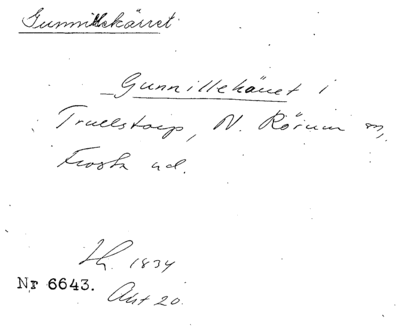 Gunnillekärret
Gunnillekärret i
Trullstorp, N. Rörum sn,
Frosta hd.
Lh. 1834
Nr 6643. Akt 20.